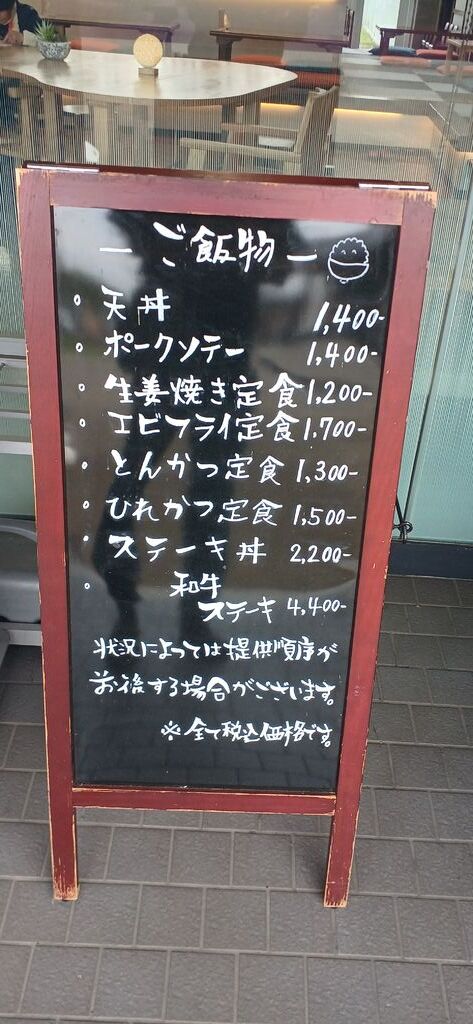 ー ご飯物 ー
。天丼 1,400-
。ポークソテー 1,400-
。生姜焼き定食 1,200-
。エビフライ定食 1,700-
。とんかつ定食 1,300-
。ひれかつ定食 1,500-
。ステーキ丼 2,200-
。和牛
ステーキ 4,400-
状況によっては提供順序が
前後する場合がございます。
※全て税込価格です。